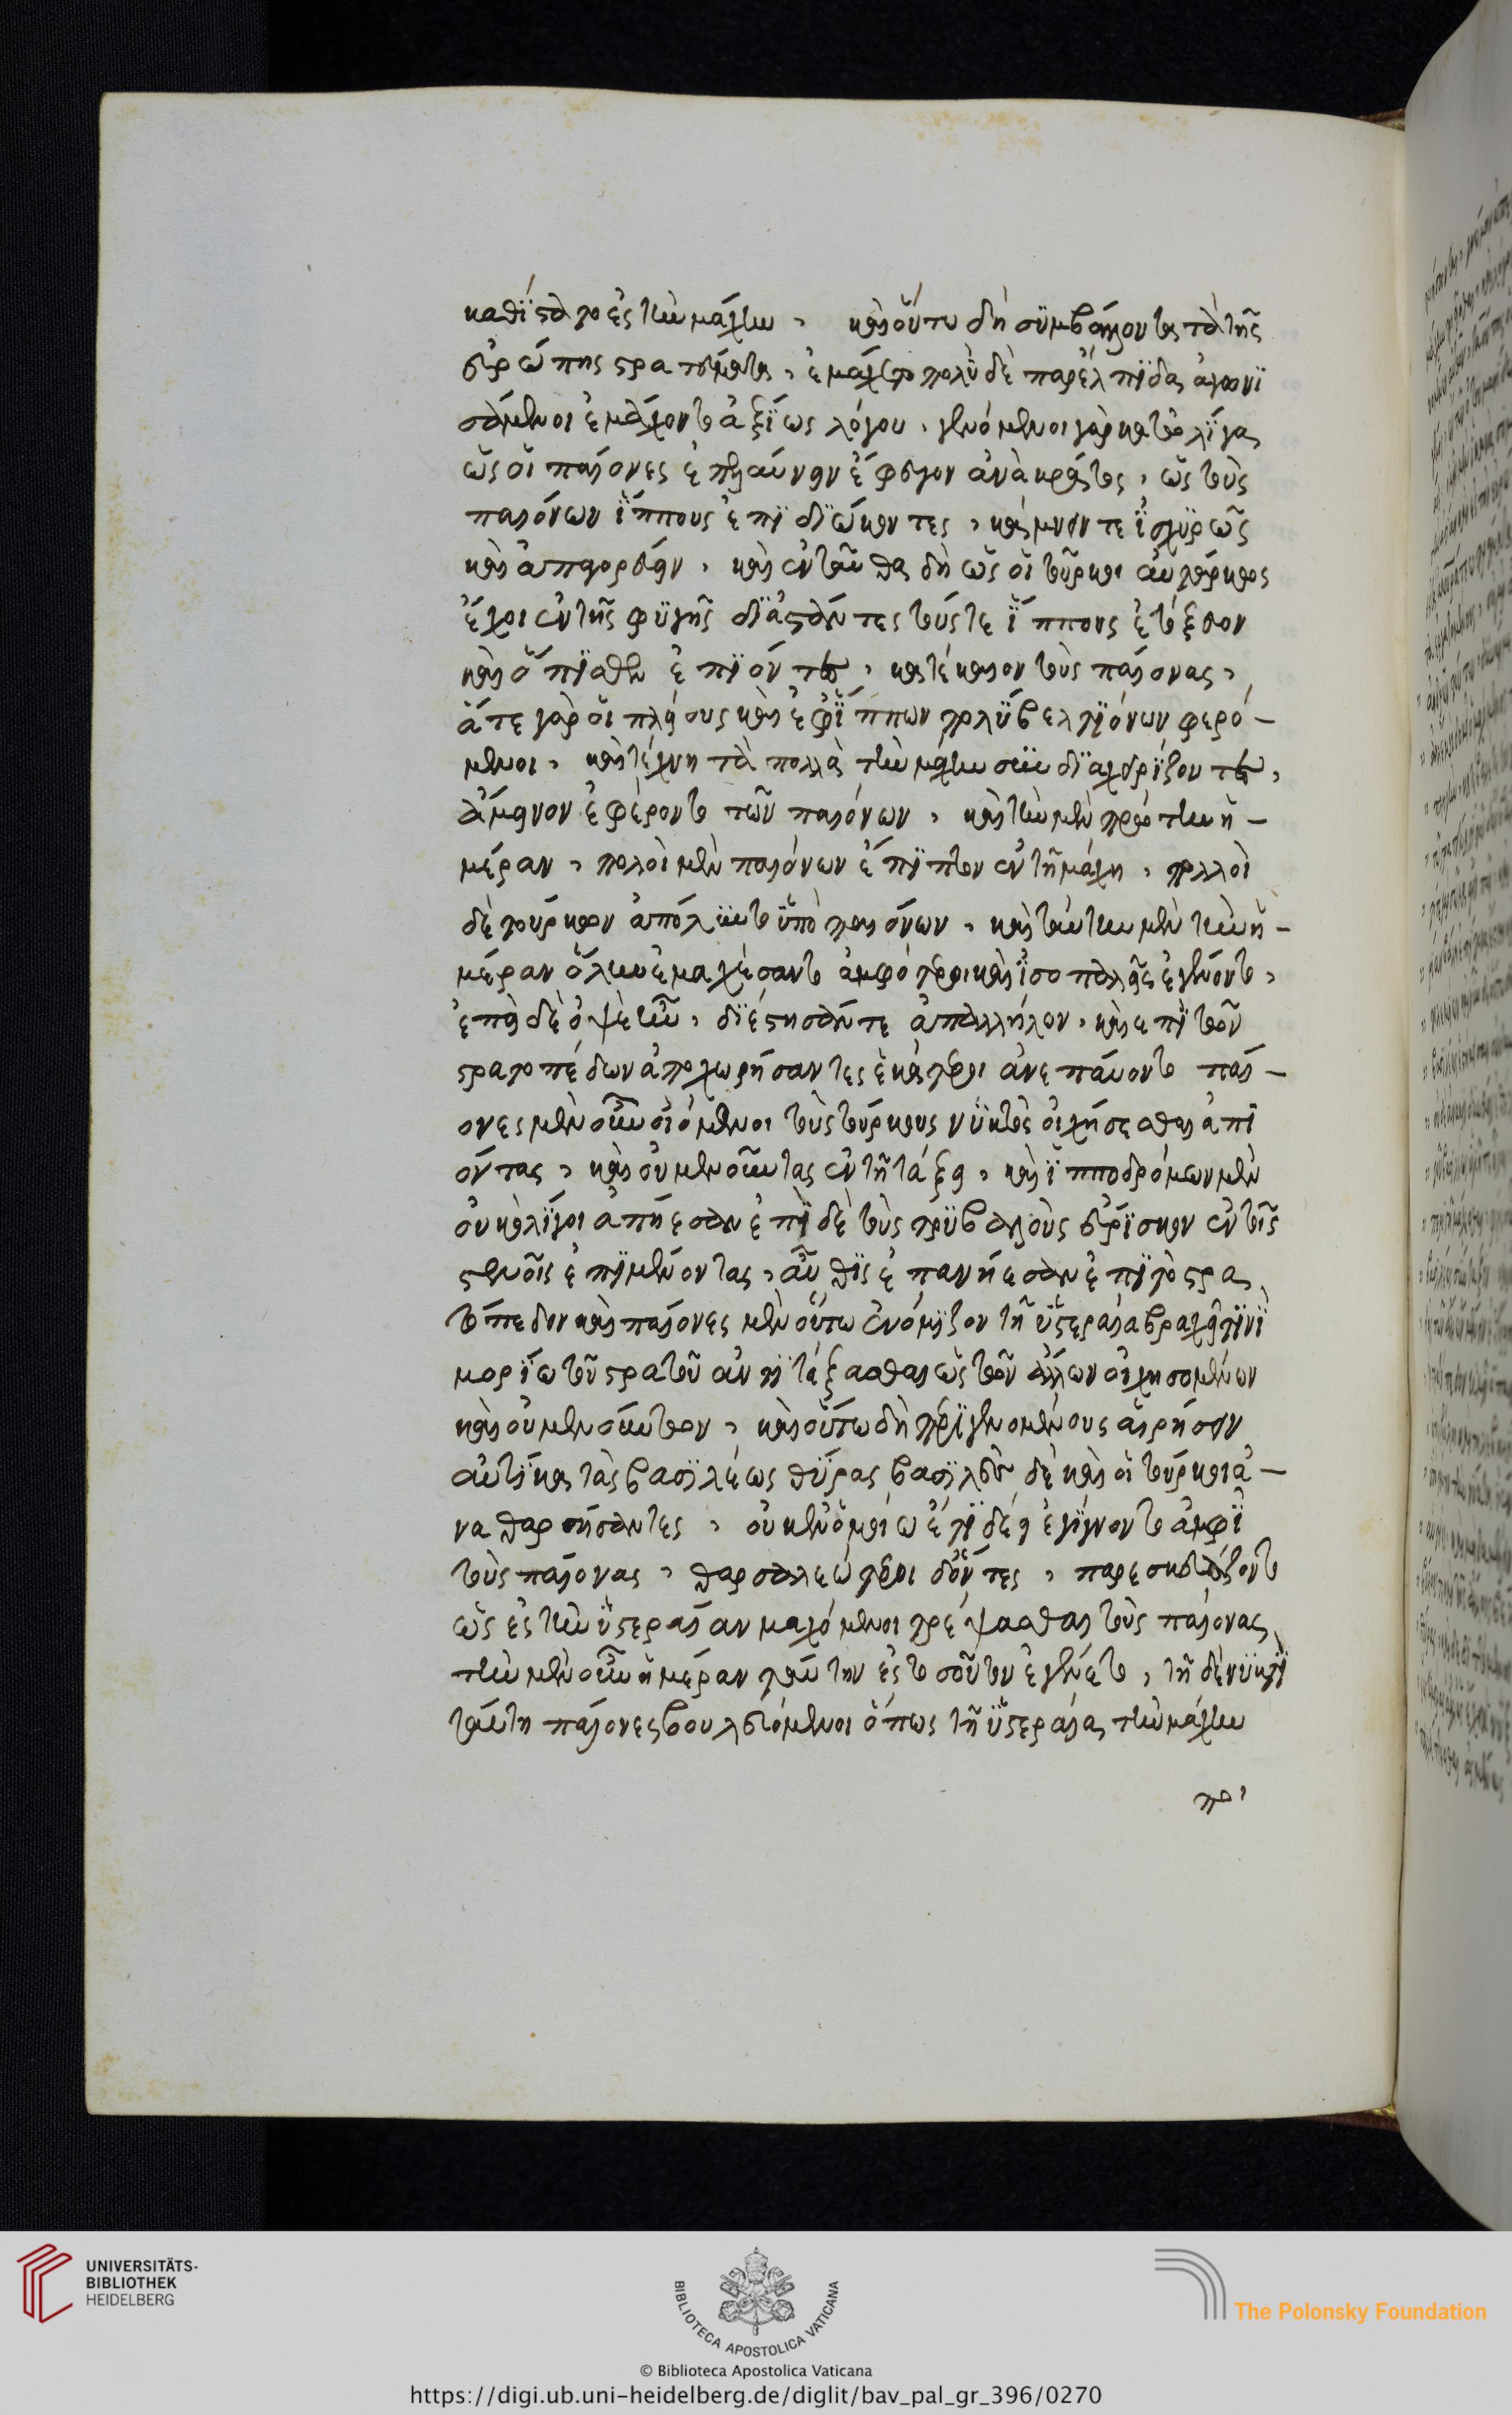 καθίστατο ἐς τὴν μάχην, καὶ οὕτω δὴ συμβάλλοντα τὰ τῆς
εὐρώπης στρατεύματα, ἐμάχετο πολὺ δὲ παρ' ἐλπίδας ἀγωνι
σάμενοι ἐμάχοντο ἀξίως λόγου, γενόμενοι γὰρ κατ' ὀλίγας
ὡς οἱ παίονες ἐπήλαυνον ἔφευγον ἀνὰ κράτος, ὡς τοὺς
παιόνων ἵππους ἐπιδιώκοντες, κάμνειν τε ἰσχυρῶς
καὶ ἀπαγορεύειν, καὶ ἐνταῦθα δὴ ὡς οἱ τοῦρκοι
ἔχοι ἐν τῆς φυγῆς διαστάντες τούς τε ἵππους ἐτόξευον
καὶ ὄπισθεν ἐπιόντες, κατέκαιον τοὺς παίονας,
ἅτε γὰρ οἱ πλείους καὶ ἐφ' ἵππων πολὺ βελτιόνων φερό-
μενοι, καὶ τέχνῃ τὰ πολλὰ τὴν μάχην σὺν διαχειρίζοντες,
ἄμεινον ἐφέροντο τῶν παιόνων, καὶ τὴν μὲν πρώτην ἡ-
μέραν, πολοὶ μὲν παιόνων ἔπιπτον ἐν τῇ μάχῃ, πολλοὶ
δὲ τούρκων ἀπόλλυντο ὑπὸ παιόνων, καὶ ταύτην μὲν τὴν ἡ-
μέραν ὅλην ἐμαχέσαντο ἀμφότεροι καὶ ἰσοπαλεῖς ἐγένοντο,
ἐπεὶ δὲ ὀψὲ ἦν, διέστησάν τε ἀπ' ἀλλήλων, καὶ ἐπὶ τῶν
στρατοπέδων ἀποχωρήσαντες ἑκάτεροι ἀνεπαύοντο παί-
ονες μὲν οὖν οἰόμενοι τοὺς τούρκους νυκτὸς οἰχήσεσθαι ἀπι
όντας, καὶ οὐ μενοῦντας ἐν τῇ τάξει, καὶ ἱπποδρόμων μὲν
οὐκ ὀλίγοι ἀπῄεσαν ἐπὶ δὲ τοὺς τριβαλλοὺς εὑρίσκων ἐν τοῖς
στενοῖς ἐπιμένοντας, αὖθις ἐπανῄεσαν ἐπὶ τὸ στρα
τόπεδον καὶ παίονες μὲν οὕτω ἐνόμιζον τῇ ὑστεραίᾳ βραχεῖ τινὶ
μορίῳ τοῦ στρατοῦ ἀντιτάξασθαι ὡς τῶν ἄλλων οἰχησομένων
καὶ οὐ μενούντων, καὶ οὕτω δὴ περιγενομένους αἱρήσειν
αὐτίκα τὰς βασιλέως θύρας βασιλεὺς δὲ καὶ οἱ τοῦρκοι ἀ-
ναθαρσήσαντες, οὐκ ἐν ὁμοίῳ ἔτι δέει ἐγίγνοντο ἀμφὶ
τοὺς παίονας, θαρσαλεώτεροι δ' ὄντες, παρεσκευάζοντο
ὡς ἐς τὴν ὑστεραίαν μαχόμενοι τρέψασθαι τοὺς παίονας
τὴν μὲν οὖν ἡμέραν ταύτην ἐς τοσοῦτον ἐγένετο, τῇ δὲ νυκτὶ
ταύτῃ παίονες βουλευόμενοι ὅπως τῇ ὑστεραίᾳ τὴν μάχην